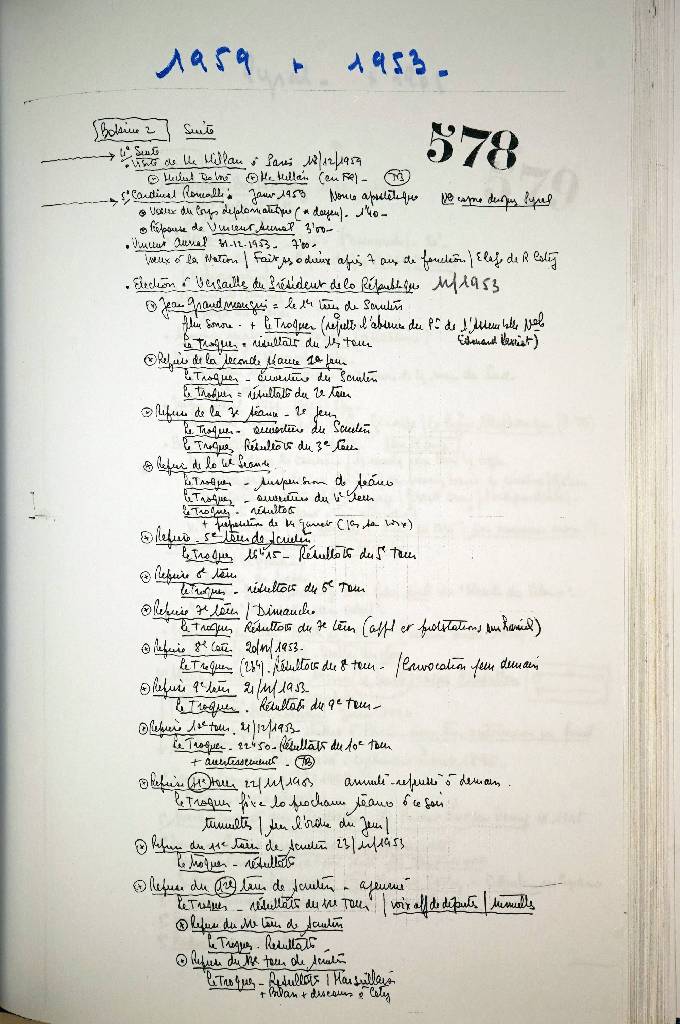 1959 + 1953.
578
Bobine 2 Suite
4° Suite
• Visite de Mc Millan à Paris 18/12/1959
Michel Debré Mc Millan (en Fç) - TB
5° Cardinal Roncalli: Janv 1953 Nonce apostolique
Voeux du Corps diplomatique ( doyen). 1'40 -
Réponse de Vincent Auriol 3'00 -
• Vincent Auriol 31.12.1953 - 7'00 -
Voeux à la Nation / Fait ses adieux après 7 ans de fonction / Eloge de R Coty
• Election à Versailles du Président de la République 12/1953
Jean Grandmougin = le 1er tour de Scrutin
film sonore - + Le Troquer (regrette l'absence du Pt de l'Assemblée Nale
Le Troquer = résultats du 1er tour Edouard Herriot)
Reprise de la seconde séance 1er jour
Le Troquer - ouverture du Scrutin
Le Troquer = résultats du 2e tour
Reprise de la 3e séance - 2e jour
Le Troquer - ouverture du Scrutin
Le Troquer Résultats du 3e tour
Reprise de la 4e Séance
Le Troquer - suspension de séance
Le Troquer - ouverture du 4e tour
Le Troquer - résultats
+ proposition de M (
Reprise - 5e tour de scrutin
Le Troquer 15h15 - Résultats du 5e tour
Reprise 6e tour
Le Troquer - résultats du 6e tour
Reprise 7e tour / Dimanche
Le Troquer Résultats du 7e tour (appl et protestations sur Laniel)
Reprise 8e tour 20/12/1953 -
Le Troquer (234) - Résultats du 8e tour - / Convocation pour demain
Reprise 9e tour 21/12/1953 -
Le Troquer. Résultats du 9e tour -
Reprise 10e tour. 21/12/1953 -
Le Troquer - 22h50 - Résultats du 10e tour
+ avertissement - TB
Reprise 11e tour 22/12/1953 annulé - repoussé à demain.
Le Troquer fixe la prochaine séance à ce soir
tumultes / sur l'ordre du Jour /
Reprise du 11e tour de scrutin 23/12/1953
Le Troquer - résultats
Reprise du 12e tour de scrutin - ajourné
Le Troquer - résultats du 11e tour / voix off de députés / tumultes
Reprise du 12e tour de scrutin
Le Troquer. Résultats
Reprise du 13e tour de scrutin
Le Troquer - Résultats / Marseillaise
+ Bilan + discours à Coty